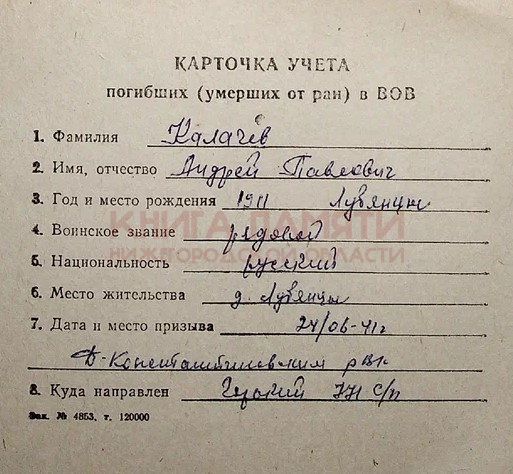 КАРТОЧКА УЧЕТА
погибших (умерших от ран) в ВОВ
1. Фамилия Калачев
2. Имя, отчество Андрей Павлович
3. Год и место рождения 1911 Лубянцы
КНИГА ПАМЯТИ
4. Воинское звание рядовой
НИЖЕГОРОДСКОЙ ОБЛАСТИ
5. Национальность русский
6. Место жительства д. Лубянцы
7. Дата и место призыва 24/06-41г
Д-Константиновским рвк
8. Куда направлен Горький с/п
Зак. № 4853, т. 120000